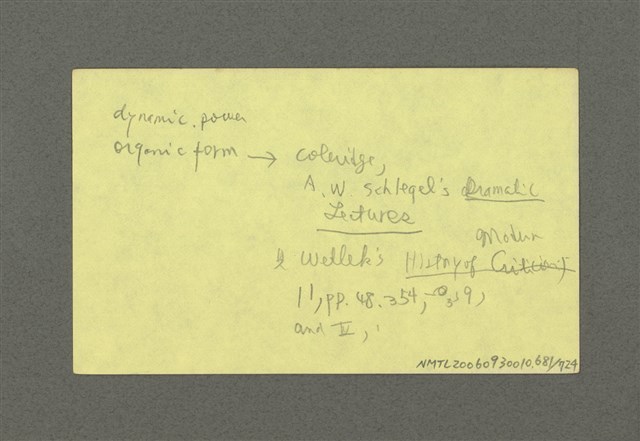 dynamic power
organic form → Coleridge,
A. W. Schlegel's Dramatic
Lectures
Modern
Wellek's History of Criticism
pp. 48. 354,
and II,
NMTL20060930010.681/724